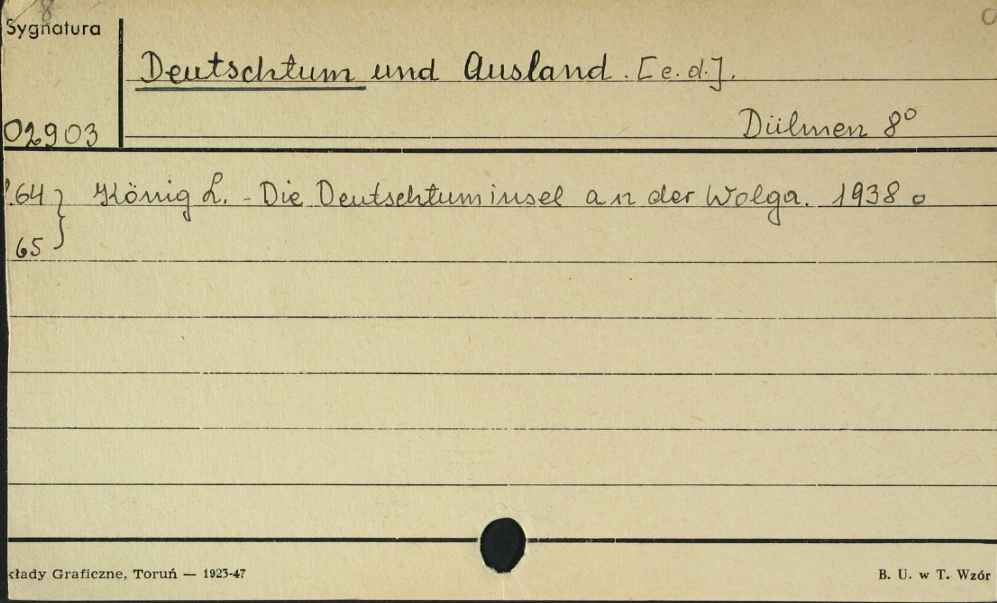 8
Sygnatura
Deutschtum und Ausland. [e.d.].
02903
Dülmen 8°
64} König L. - Die Deutschtuminsel an der Wolga. 1938
65
kłady Graficzne, Toruń — 1923-47
B. U. w T. Wzór